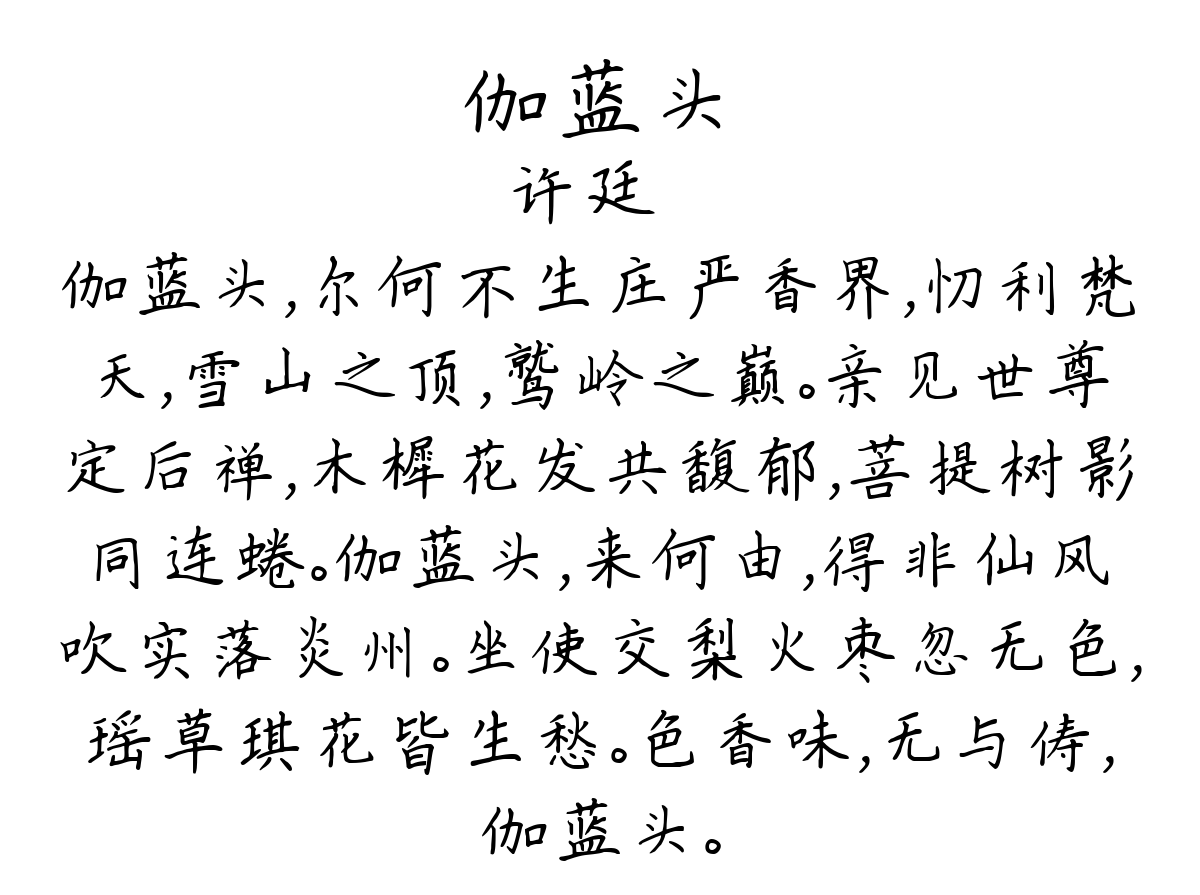 伽蓝头
许廷
伽蓝头,尔何不生庄严香界,忉利梵
天,雪山之顶,鹫岭之巅。亲见世尊
定后禅,木樨花发共馥郁,菩提树影
同连蜷。伽蓝头,来何由,得非仙风
吹实落炎州。坐使交梨火枣忽无色,
瑶草琪花皆生愁。色香味,无与俦,
伽蓝头。